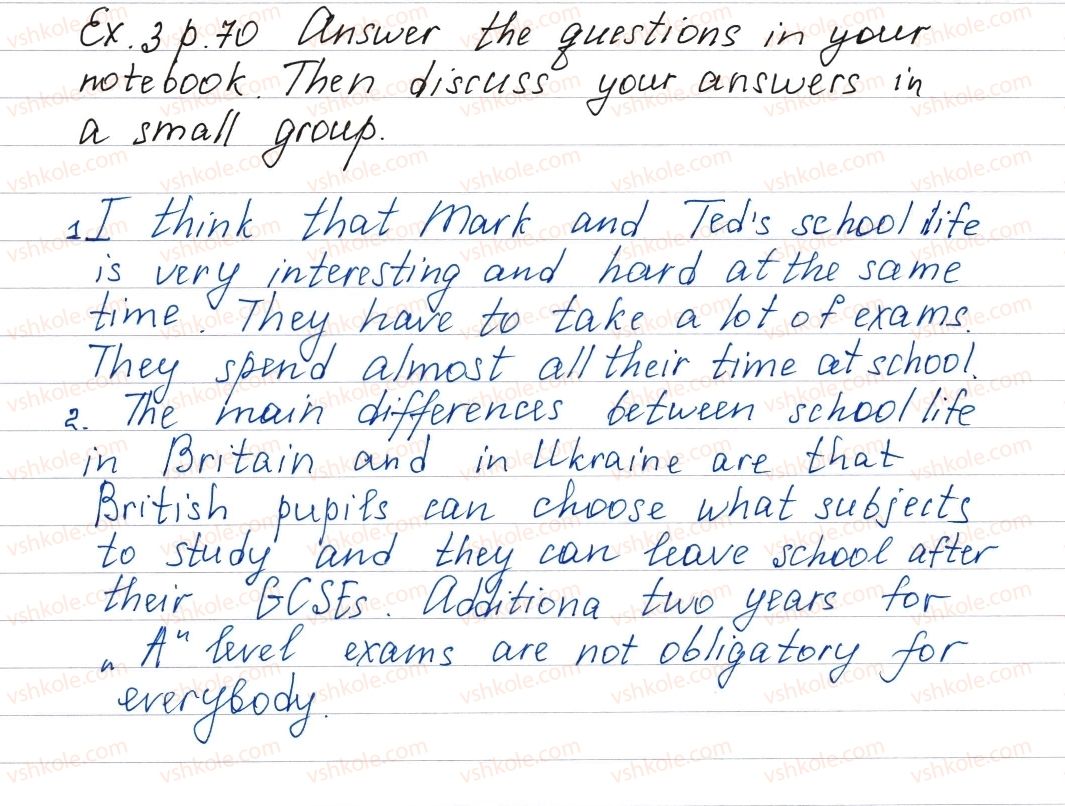 Ex. 3 p. 70 Answer the questions in your
notebook. Then discuss your answers in
a small group.
1. I think that Mark and Ted's school life
is very interesting and hard at the same
time. They have to take a lot of exams.
They spend almost all their time at school.
2. The main differences between school life
in Britain and in Ukraine are that
British pupils can choose what subjects
to study and they can leave school after
their GCSEs. Additiona two years for
„A" level exams are not obligatory for
everybody.
vshkole.com